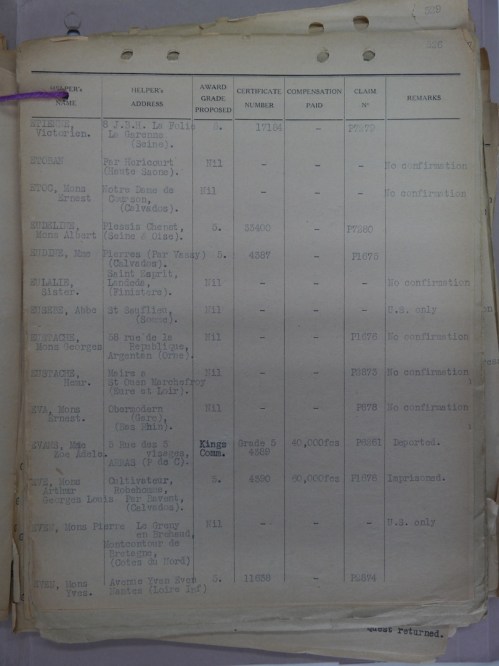 HELPER's NAME HELPER's ADDRESS AWARD GRADE PROPOSED CERTIFICATE NUMBER COMPENSATION PAID CLAIM No REMARKS
ETIENNE, 8 J.B.H. La Folie 5. 17184 -
Victorien. La Garenne
(Seine).
Par Hericourt Nil - - - No confirmation
(Haute Saone).
Mons Notre Dame de Nil - - - No confirmation
Ernest Courson,
(Calvados).
Plessis Chenet, 5. -
Mons Albert (Seine & Oise).
Mme Pierres (Par Vassy) 5. 4387 - P1675
(Calvados).
EULALIE, Saint Esprit, Nil - - - No confirmation
Sister. Landeda,
(Finistere).
EUGENE, Abbe St Sauflieu, Nil - - - U.S. only
(Somme).
EUSTACHE, 58 rue de la Nil - - P1676 No confirmation
Mons Georges République,
Argentan (Orne).
EUSTACHE, Nil - - No confirmation
St Ouen Marchefroy
(Eure et Loir).
EVA, Mons Obermodern Nil - - P878 No confirmation
Ernest. (Gare),
(Bas Rhin).
EVANS, Mme 5 Rue des 3 Kings Grade 5 40,000fcs Deported.
Zoe Adele. visages, Comm.
ARRAS (P de C).
EVE, Mons Cultivateur, 5. 4390 60,000fcs P1678 Imprisoned.
Arthur Robehomme,
Georges Louis Par Bavent,
(Calvados).
EVEN, Mons Pierre Nil - - - U.S. only
en Brehand,
Montcontour de
Bretagne,
(Cotes du Nord)
EVEN, Mons Avenue Yves Even 5. 11658 -
Yves. Nantes (Loire Inf)
returned.